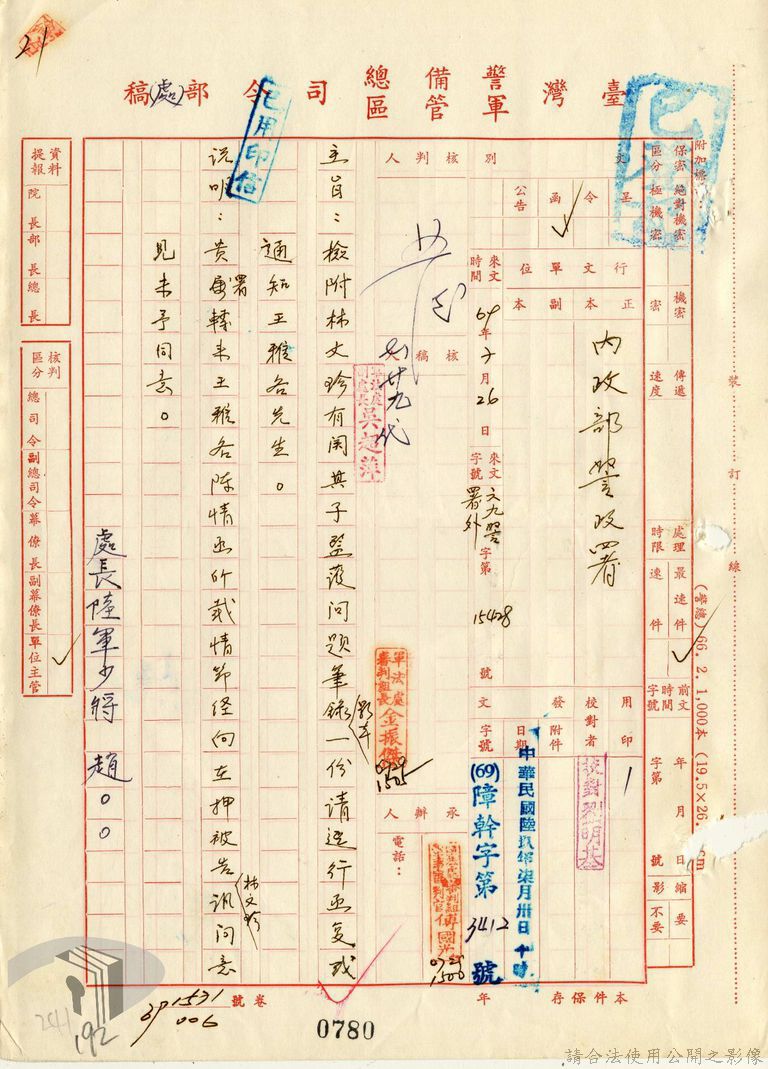 臺灣警備總司令部(處)稿
軍管區
已用印信
附加標
保密區分
絕對機密
極機密
機密
密
傳遞速度
處理時限
最速件
速件
前文時間字號
年 月 日
字第 號
縮影
要
不要
文別
呈
令
函
公告
行文單位
正本
副本
內政部警政署
來文時間
69年7月26日
來文字號
署外
字第
15428
號
用印
校對者
校對劉明基
發文
附件
日期
中華民國陸玖年柒月卅日
字號
(69)障幹字第3412號
核判人
核稿人
廿九代
吳超萍
軍法處審判組長金振傑
0729
1505
承辦人
電話：
1500
主旨：檢附林文珍有關其子監護問題筆錄(影本)一份請逕行函復或
通知王雅各先生。
說明：貴署轉來王雅各陳情函所載情節經向在押被告林文珍訊問意
見未予同意。
處長陸軍少將 趙○○
資料提報
院長
部長
總長
核判區分
總司令
副總司令
幕僚長
副幕僚長
單位主管
裝訂線
(警總)66.2.1,000本(19.5×26. cm
本件保存 年
卷號
1531
006
0780
21
241
192
請合法使用公開之影像